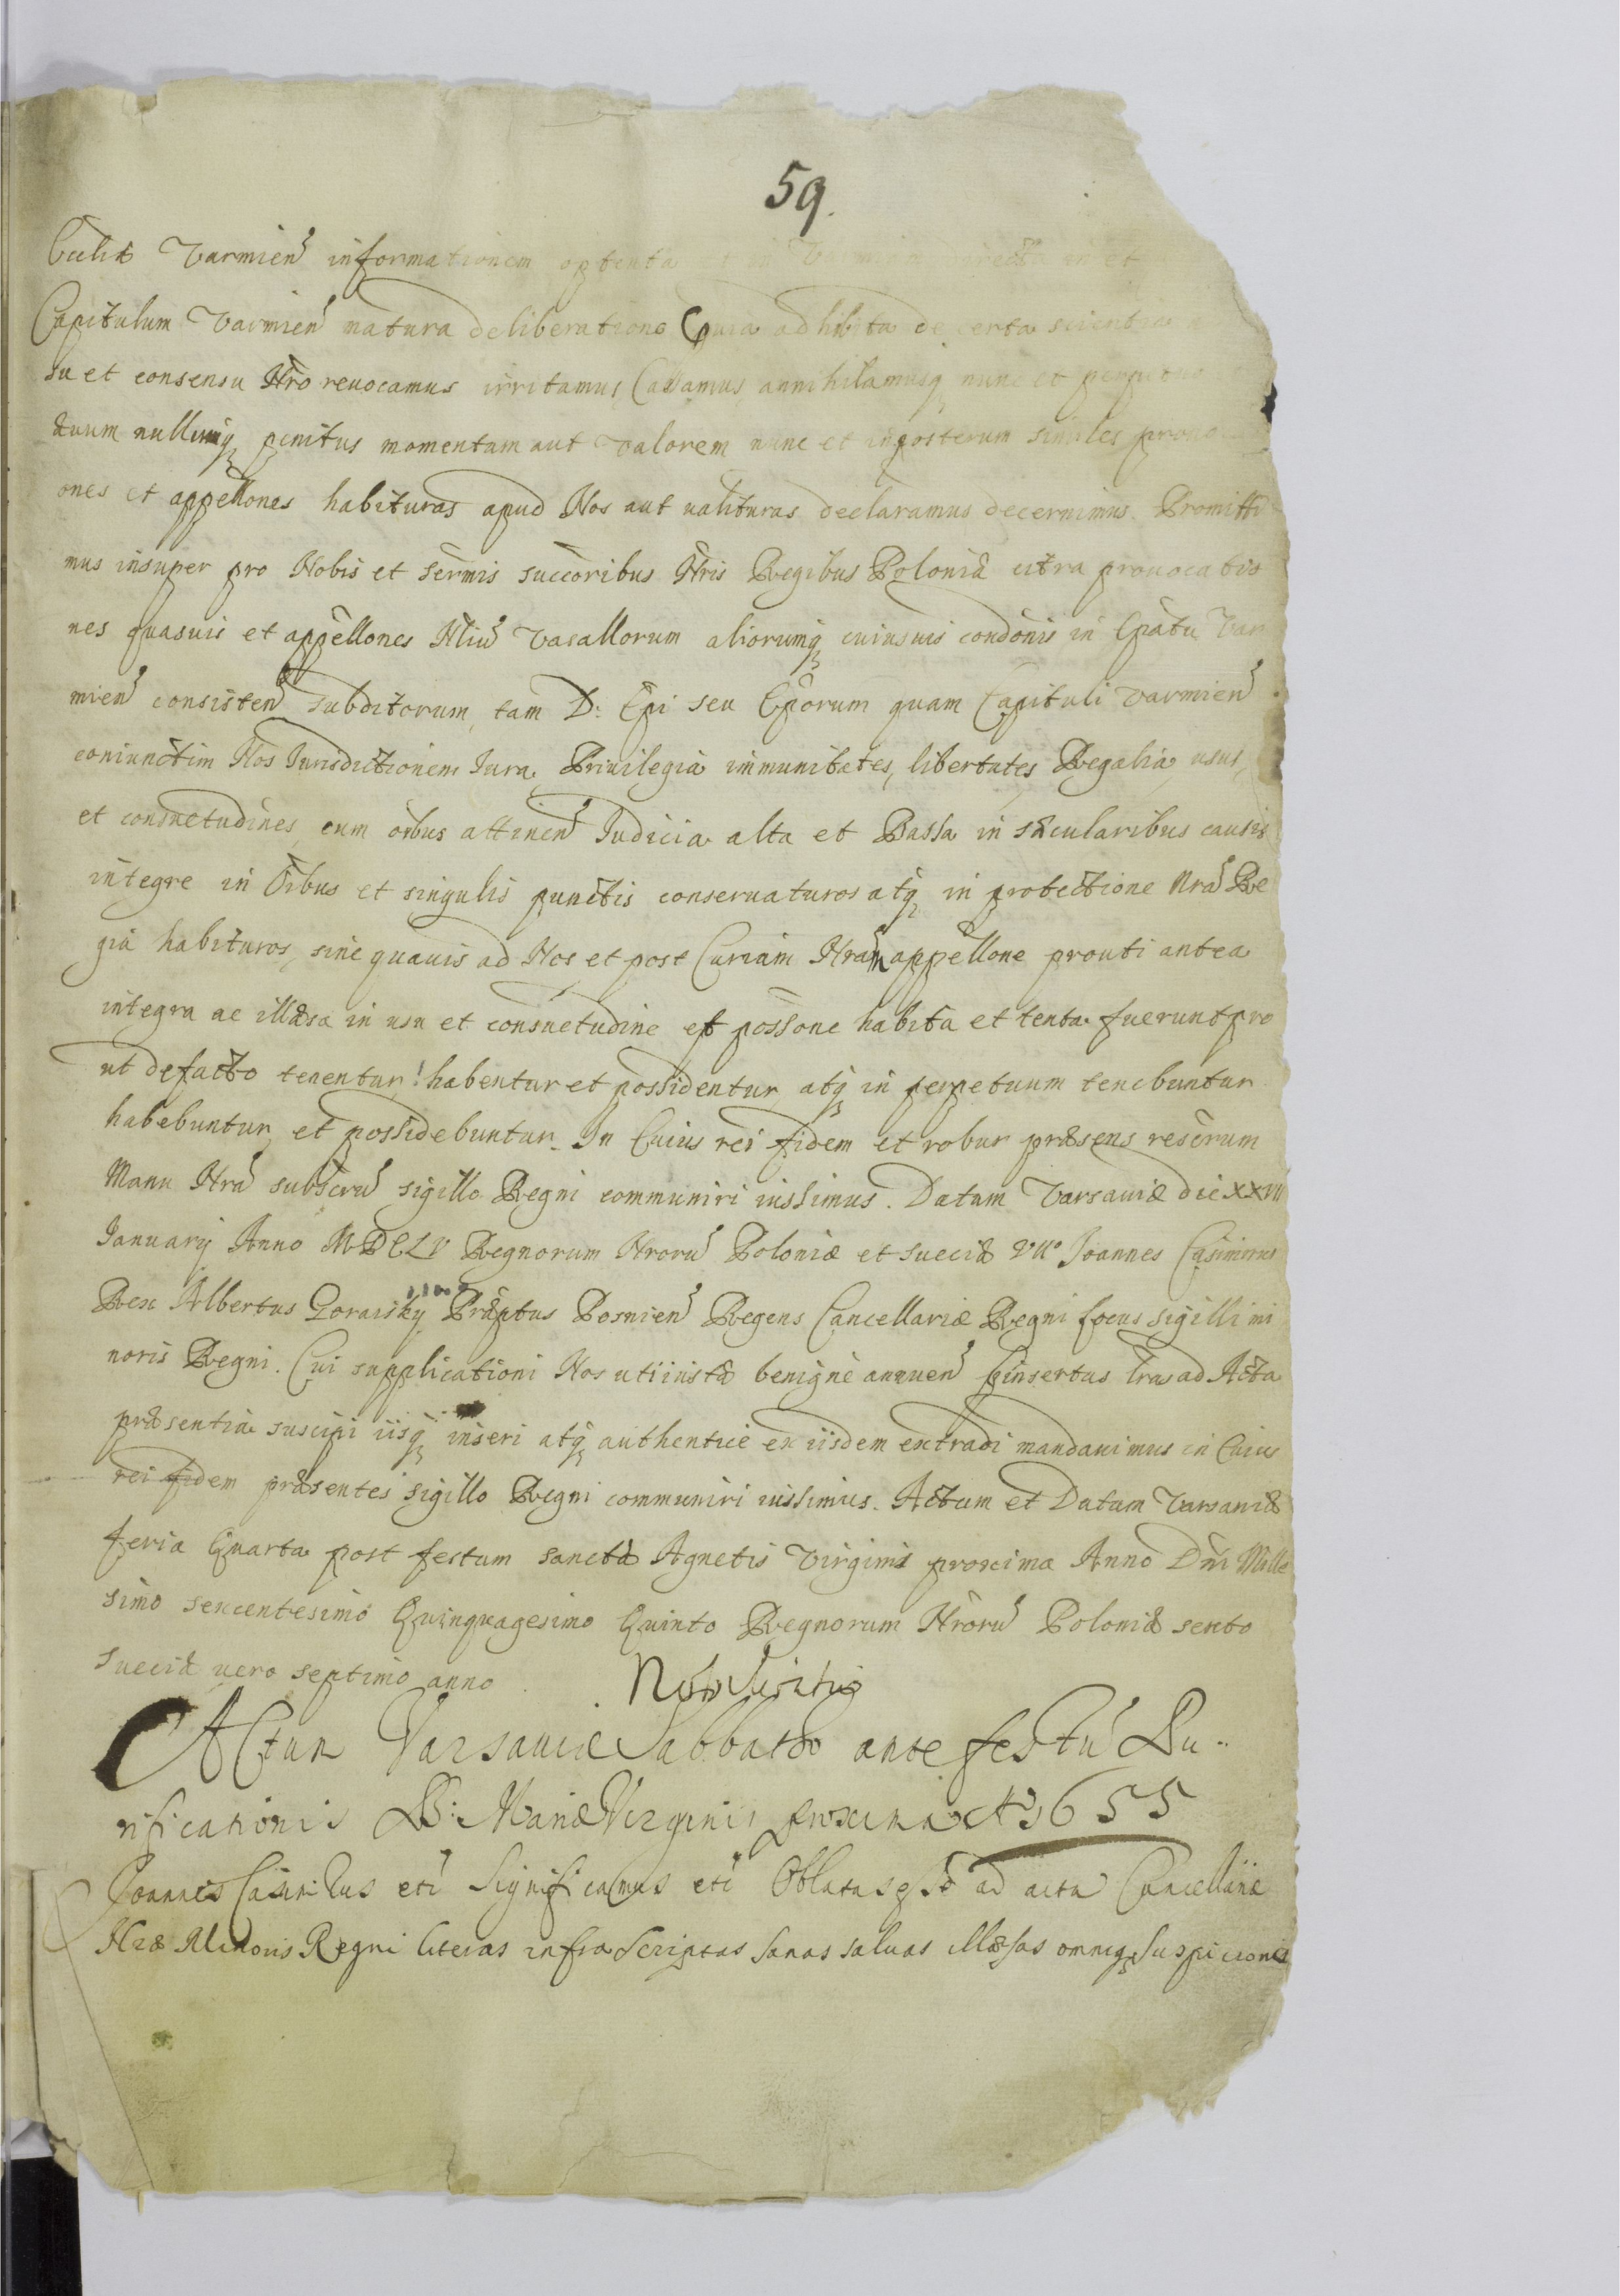 59.
Varmien informationem optenta
Capitulum Varmien natura deliberatione adhibita de certa scientia
su et consensu Nro revocamus irritamus, Cassamus, annihilamusq nunc et perpetuo
nullumq penitus momentum aut valorem nunc et inposterum similes
ones et appellones habituras apud Nos aut valituras declaramus decernimus. Promitti
mus insuper pro Nobis et Sermis succoribus Nris Regibus Poloniæ citra provocatio
nes quasvis et appellones Vasallorum aliorumq cuiusvis condonis in Epatu Var
mien consisten subditorum, tam D: Epi seu Eporum quam Capituli Varmien
coniunctim Nos Jurisdictionem Jura, Privilegia immunitates, libertates, Regalia, usus,
et consuetudines, cum oibus attinen Judicia alta et Bassa in sæcularibus causis
integre in Oibus et singulis punctis conservaturos atq in protectione Nra Re
gia habituros, sine quavis ad Nos et post Curiam Nram appellone prouti antea
integra ac illæsa in usu et consuetudine et possone habita et tenta fuerunt pro
ut defacto tenentur habentur et possidentur atq in perpetuum tenebuntur
habebuntur et possidebuntur. In Cuius rei fidem et robur præsens rescrum
Manu Nra subscru sigillo Regni communiri iussimus. Datum Varsaviæ die XXVII
Januarij Anno MDCLV Regnorum Nroru Poloniæ et Sueciæ VIIo Joannes Casimirus
Rex Albertus Goraisky Præptus Posnien Regens Cancellariæ Regni Locus sigilli mi
noris Regni. Cui supplicationi Nos uti iustæ benigne annuen insertas Lras ad Acta
præsentia suscipi iisq inseri atq authentice ex iisdem extradi mandavimus in Cuius
rei fidem præsentes sigillo Regni communiri iussimus. Actum et Datum Varsaviæ
feria Quarta post festum sanctæ Agnetis Virginis proxima Anno Dni Mille
simo sexcentesimo Quinquagesimo Quinto Regnorum Nroru Poloniæ sexto
Sueciæ vero septimo anno.
Actum Varsaviæ Sabbatho ante festu Pu..
rificationis B: Mariæ Virginis proximo Ao 1655
Joannes Casimirus etc Significamus etc Oblatas esse ad acta Cancellariæ
Nræ Minoris Regni literas infra Scriptas sanas salvas illæsas omniq suspicionis